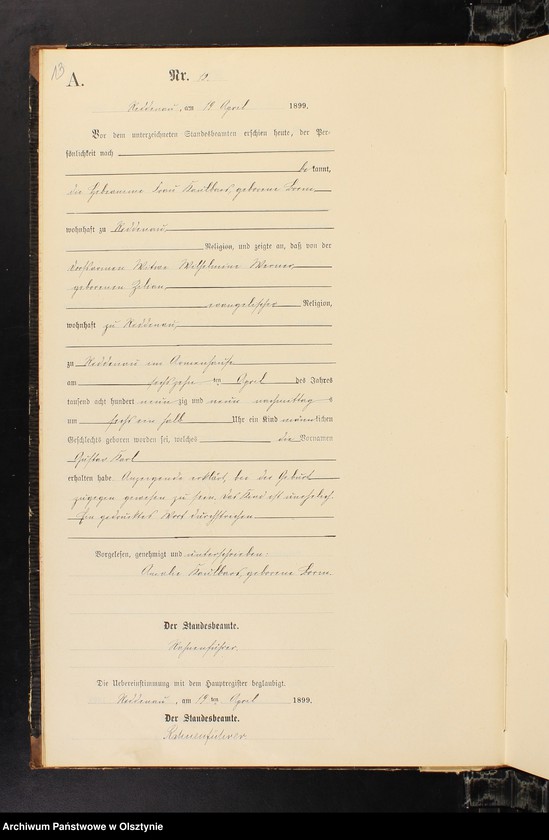 13
A.
Nr. 12.
Reddenau, am 19 April 1899.
Vor dem unterzeichneten Standesbeamten erschien heute, der Per-
sönlichkeit nach
be kannt,
die Hebeamme Frau Kaulbars, geborene
wohnhaft zu Reddenau
Religion, und zeigte an, daß von der
Ortsarmen Witwe Wilhelmine Werner
geborenen
evangelischer Religion,
wohnhaft zu Reddenau
zu Reddenau im Armenhause
am sechszehn ten April des Jahres
tausend acht hundert neun zig und neun nachmittag s
um sechs ein halb Uhr ein Kind männlichen
Geschlechts geboren worden sei, welches die Vornamen
Gustav Karl
erhalten habe. Anzeigende erklärt, bei der Geburt
zugegen gewesen zu sein. Das Kind ist unehelich.
Ein gedrucktes Wort durchstrichen
Vorgelesen, genehmigt und unterschrieben
Amalie Kaulbars, geborene
Der Standesbeamte.
Rahnenführer
Die Uebereinstimmung mit dem Hauptregister beglaubigt.
Reddenau, am 19 ten April 1899.
Der Standesbeamte.
Rahnenführer
Archiwum Państwowe w Olsztynie